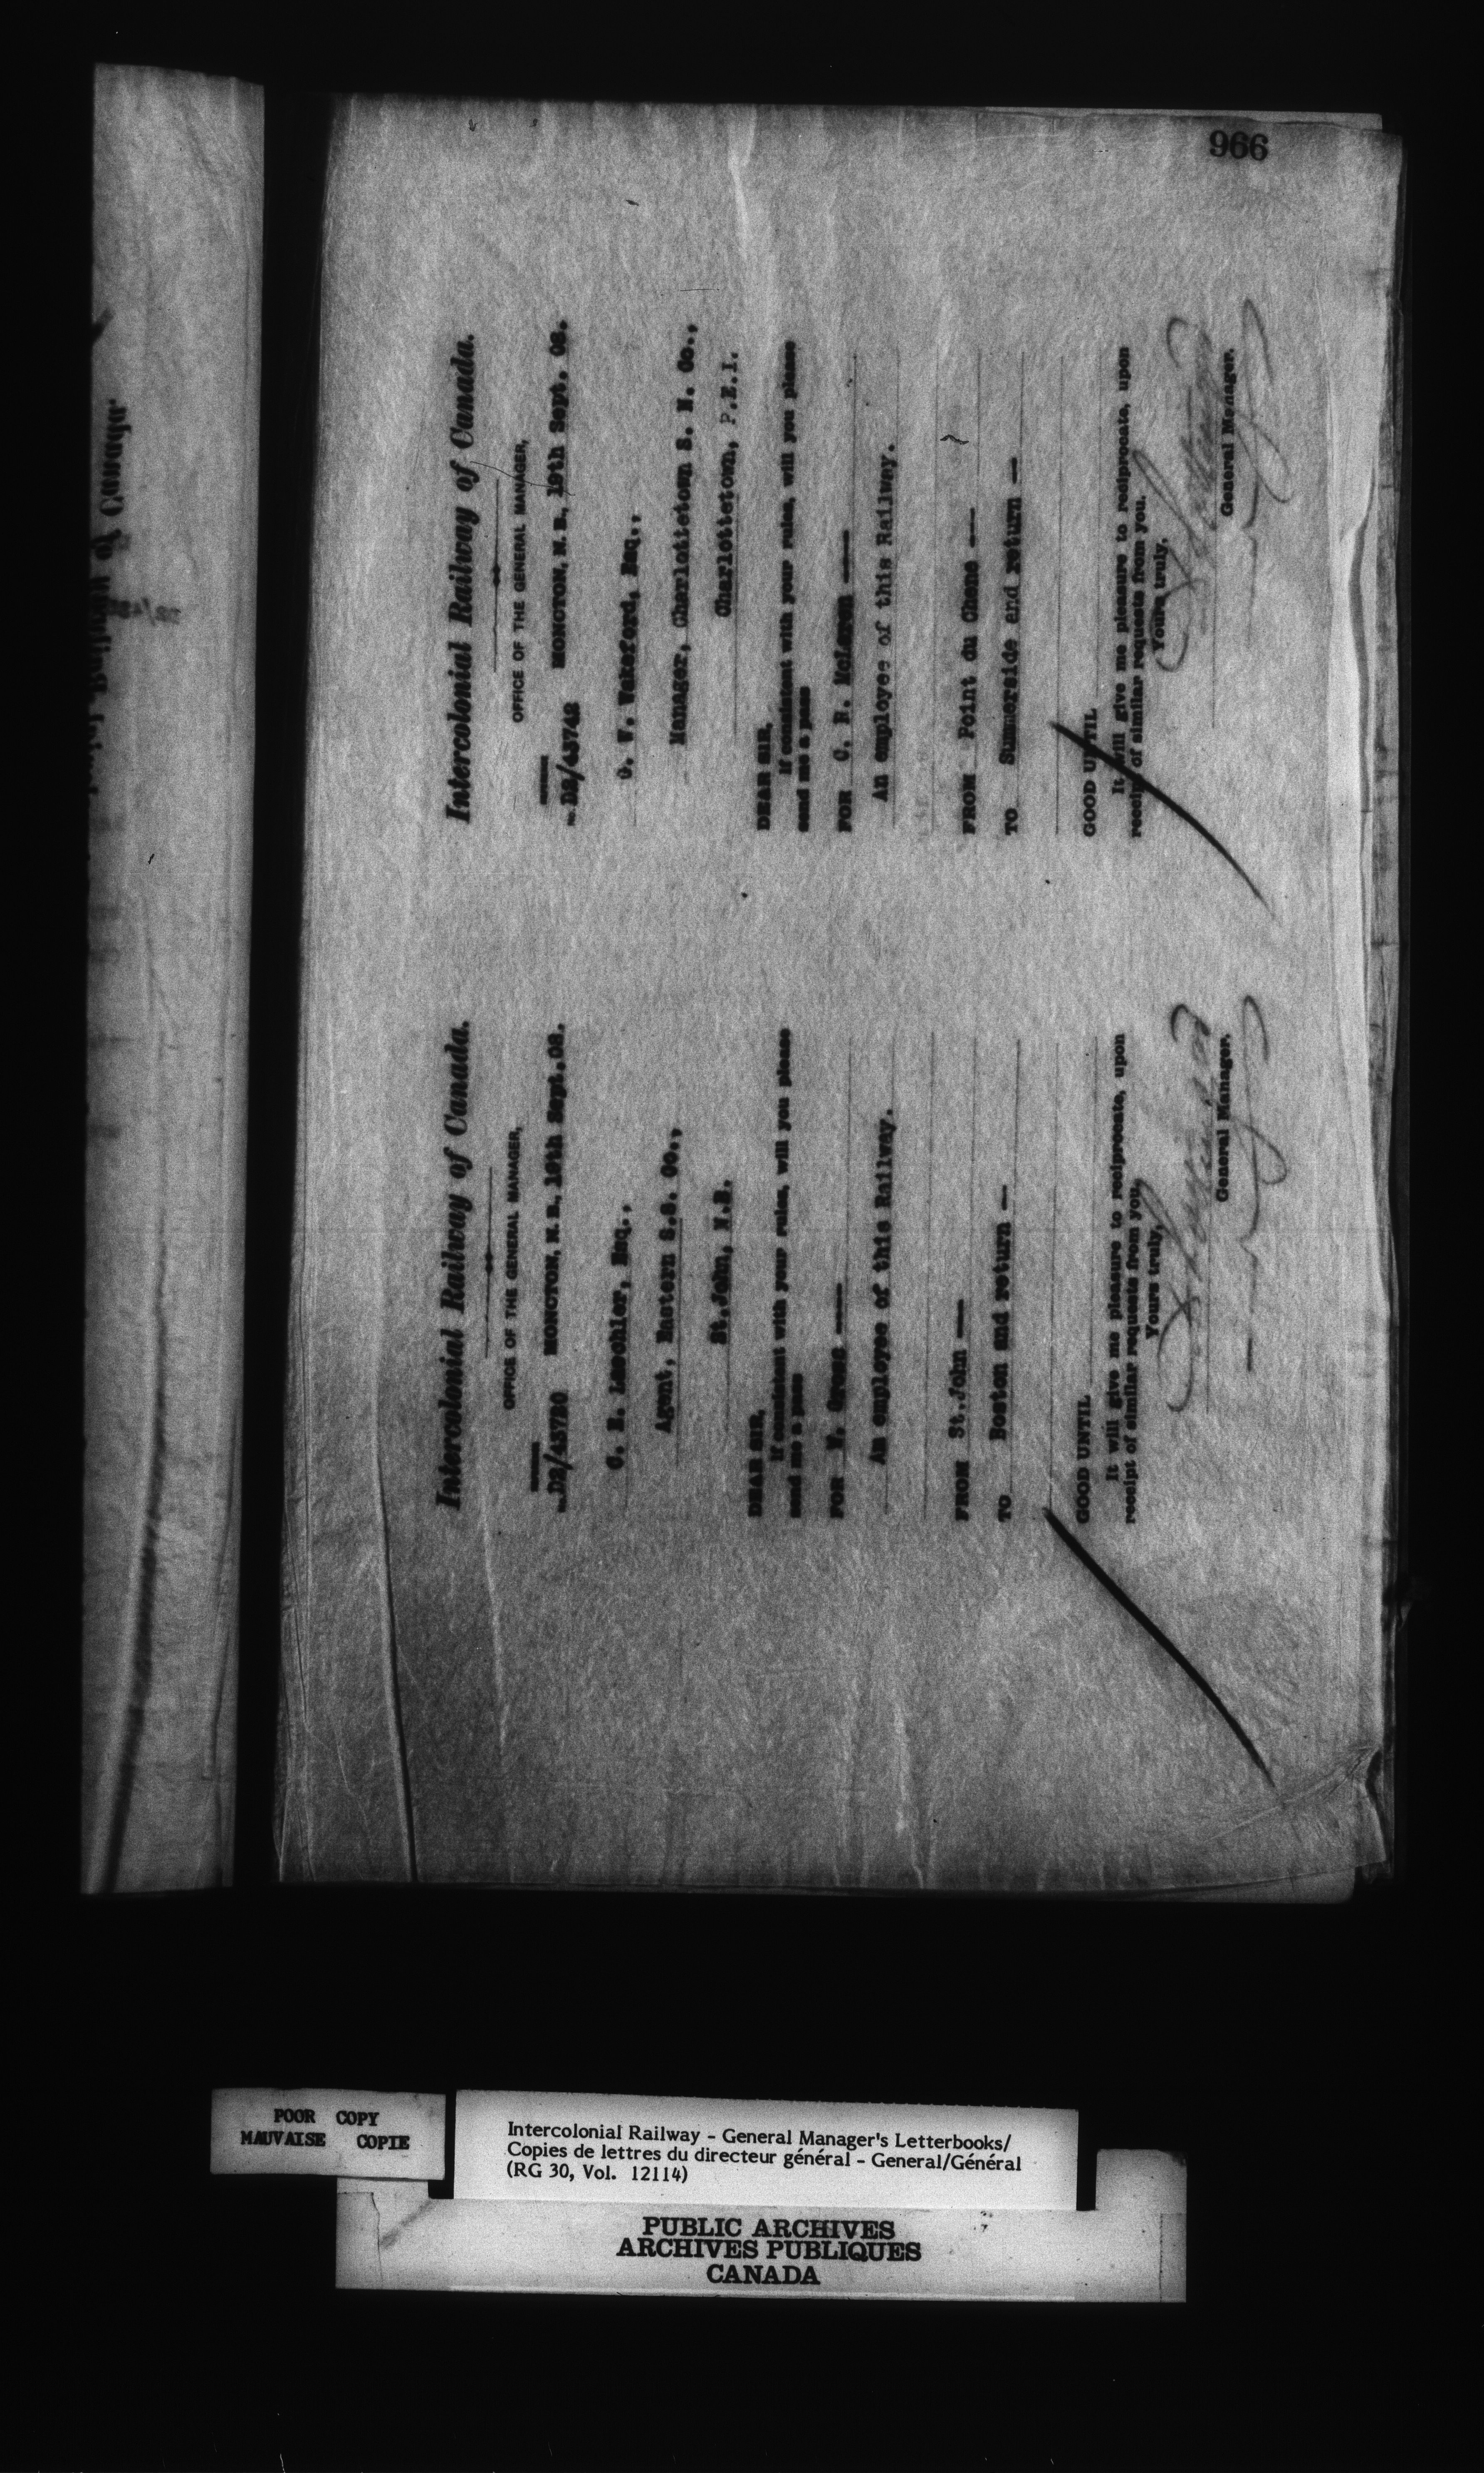 966
Intercolonial Railway of Canada.
OFFICE OF THE GENERAL MANAGER,
D2/45720 MONCTON, N. B., 19th Sept. 08.
C. E. Laechler, Esq.,
Agent, Eastern S.S. Co.,
St.John, N.B.
DEAR SIR,
If consistent with your rules, will you please
send me a pass
FOR W. Green
An employee of this Railway.
FROM St.John
TO Boston and return
GOOD UNTIL
It will give me pleasure to reciprocate, upon
receipt of similar requests from you.
Yours truly,
General Manager.
Intercolonial Railway of Canada.
OFFICE OF THE GENERAL MANAGER,
D2/45742 MONCTON, N. B., 19th Sept. 08.
G. W. Wakeford, Esq.,
Manager, Charlottetown S. N. Co.,
Charlottetown, P.E.I.
DEAR SIR,
If consistent with your rules, will you please
send me a pass
FOR C. N. McLaren
An employee of this Railway.
FROM Point du Chene
TO Summerside and return
GOOD UNTIL
It will give me pleasure to reciprocate, upon
receipt of similar requests from you.
Yours truly,
General Manager.
POOR COPY
MAUVAISE COPIE
Intercolonial Railway - General Manager's Letterbooks/
Copies de lettres du directeur général - General/Général
(RG 30, Vol. 12114)
PUBLIC ARCHIVES
ARCHIVES PUBLIQUES
CANADA